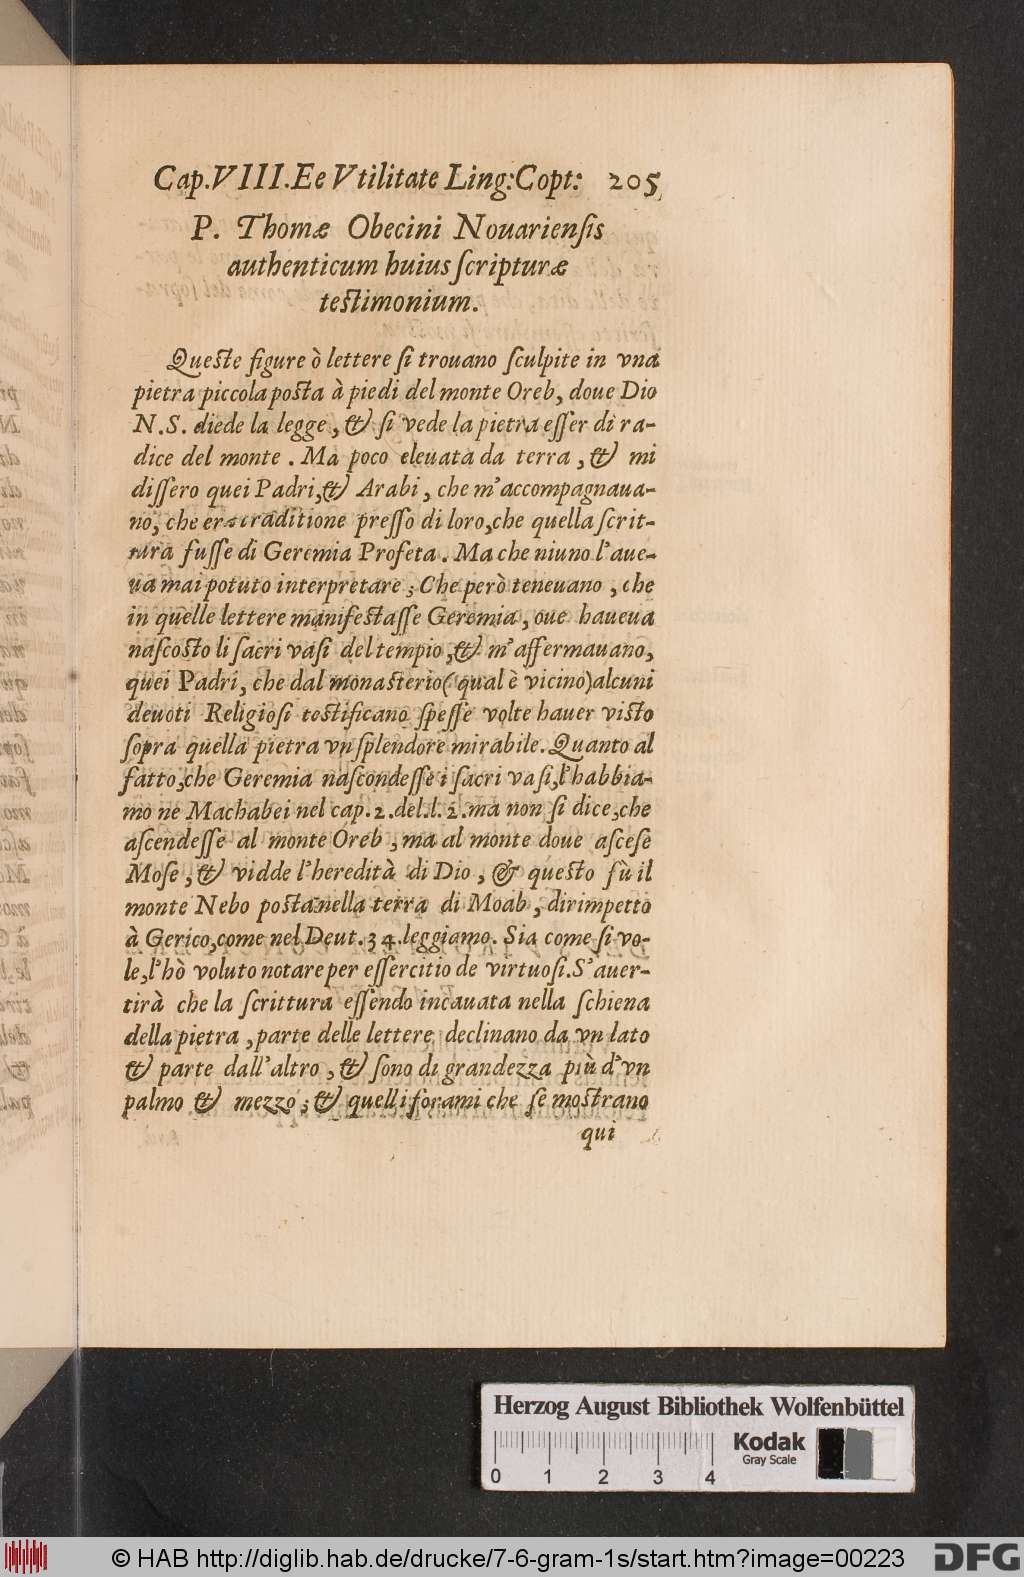 Cap.VIII.Ee Vtilitate Ling:Copt: 205
P. Thomæ Obecini Nouarienſis
authenticum huius ſcripturæ
teſtimonium.
Queſte figure ò lettere ſi trouano ſculpite in vna
pietra piccola poſta à piedi del monte Oreb, doue Dio
N.S. diede la legge, & ſi vede la pietra eſſer di ra-
dice del monte. Ma poco eleuata da terra, & mi
diſſero quei Padri, & Arabi, che m'accompagnaua-
no, che era traditione preſſo di loro, che quella ſcrit-
tura fuſſe di Geremia Profeta. Ma che niuno l'aue-
ua mai potuto interpretare; Che però teneuano, che
in quelle lettere manifeſtaſſe Geremia, oue haueua
naſcoſto li ſacri vaſi del tempio, & m'affermauano,
quei Padri, che dal monaſterio (qual è vicino) alcuni
deuoti Religioſi teſtificano ſpeſſe volte hauer viſto
ſopra quella pietra vn ſplendore mirabile. Quanto al
fatto, che Geremia naſcondeſſe i ſacri vaſi, l'habbia-
mo ne Machabei nel cap. 2. del.l. 2. ma non ſi dice, che
aſcendeſſe al monte Oreb, ma al monte doue aſceſe
Moſe, & vidde l'heredità di Dio, & queſto fù il
monte Nebo poſta nella terra di Moab, dirimpetto
à Gerico, come nel Deut. 34. leggiamo. Sia come ſi vo-
le, l'hò voluto notare per eſſercitio de virtuoſi. S'auer-
tirà che la ſcrittura eſſendo incauata nella ſchiena
della pietra, parte delle lettere declinano da vn lato
& parte dall'altro, & ſono di grandezza più d'vn
palmo & mezzo; & quelli forami che ſe moſtrano
qui
Herzog August Bibliothek Wolfenbüttel
0 1 2 3 4
Kodak
Gray Scale
© HAB http://diglib.hab.de/drucke/7-6-gram-1s/start.htm?image=00223
DFG